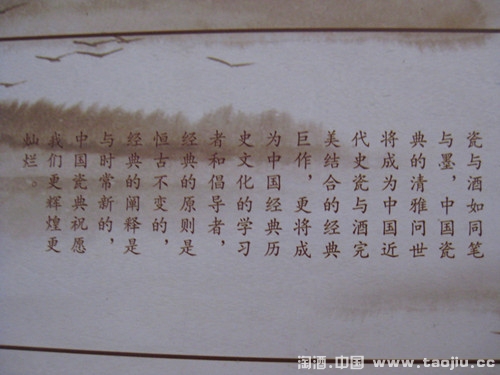 瓷与酒如同笔
与墨，中国瓷
典的清雅问世
将成为中国近
代史瓷与酒完
美结合的经典
巨作，更将成
为中国经典历
史文化的学习
者和倡导者，
经典的原则是
恒古不变的，
经典的阐释是
与时常新的，
中国瓷典祝愿
我们更辉煌更
灿烂。
淘酒.中国 www.taojiu.cc